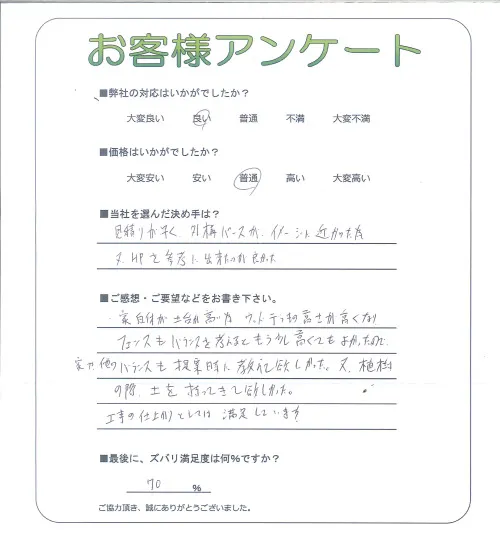 お客様アンケート
■弊社の対応はいかがでしたか？
大変良い 良い 普通 不満 大変不満
■価格はいかがでしたか？
大変安い 安い 普通 高い 大変高い
■当社を選んだ決め手は？
見積りが早く 外構パースが、イメージに近かった為
又、HPを参考に出来たのが良かった
■ご感想・ご要望などをお書き下さい。
・家自体が土台が高い為 ウッドデッキの高さが高くなり
フェンスもバランスを考えるともう少し高くてもよかったので、
他のバランスも提案時に教えて欲しかった。又、植樹
の際、土を持ってきて欲しかった。
工事の仕上りとしては 満足しています
■最後に、ズバリ満足度は何%ですか？
70 %
ご協力頂き、誠にありがとうございました。